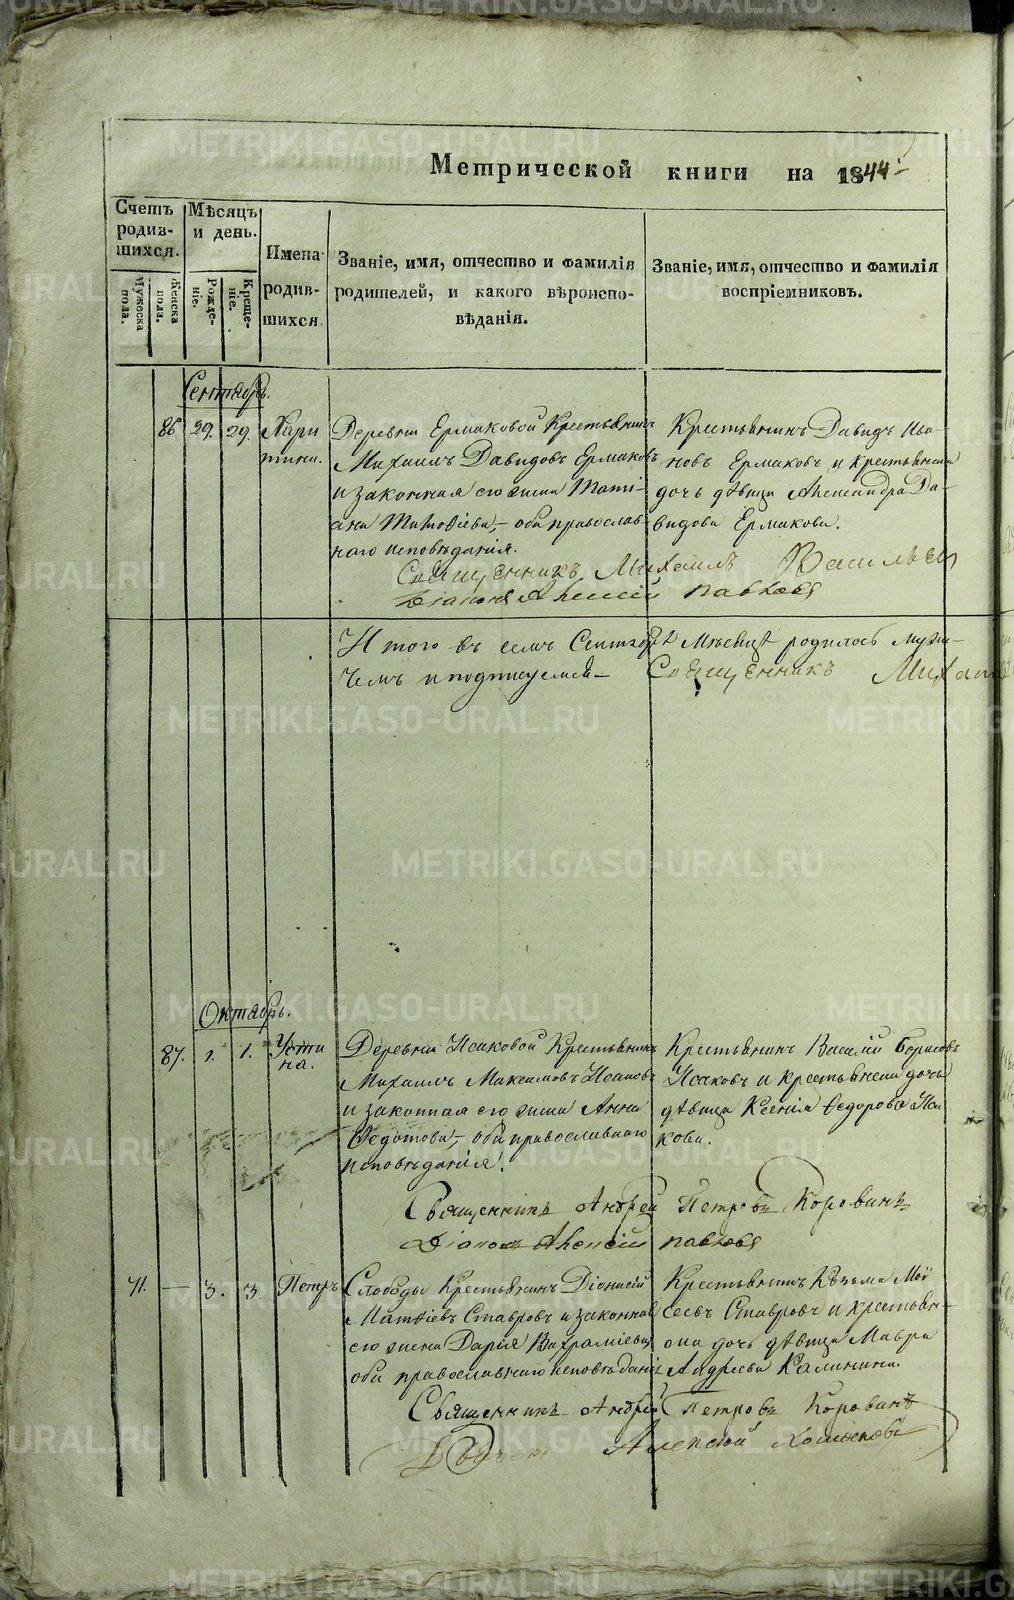 Метрической книги на 1844
Счетъ родившихся.
Мужеска пола.
Женска пола.
Мѣсяцъ и день.
Рожденіе.
Крещеніе.
Имена родившихся.
Званіе, имя, отчество и фамилія
родителей, и какого вѣроиспо-
вѣданія.
Званіе, имя, отчество и фамилія
воспріемниковъ.
Сентябрь.
86 29. 29. Хари
тина.
Деревни Ермаковой Крестьянинъ
Михаилъ Давидовъ Ермаковъ
и законная его жена Тати-
ана Матѳіева, – оба православ
наго исповѣданія.
Крестьянинъ Давидъ Ива-
новъ Ермаковъ и крестьянская
дочь дѣвица Александра Да-
видова Ермакова.
Священникъ Михаилъ Васильев
Діаконъ Алексій Павловъ
И того въ семъ Сентябрѣ Мѣсяцѣ родилось муже-
чемъ и подписуемся – Священникъ Михаил
Октябрь.
87. 1. 1. Усти
на.
Деревни Исаковой Крестьянинъ
Михаилъ Максимовъ Исаковъ
и законная его жена Анна
Ѳедотова, – оба православнаго
исповѣданія.
Крестьянинъ Василій Борисовъ
Исаковъ и крестьянская дочь
дѣвица Ксенія Ѳедорова Иса
кова.
Священникъ Андрей Петровъ Коровинъ
Діаконъ Алексій Павловъ
71. — 3. 3. Петръ
Слободы Крестьянинъ Діонисій
Матѳіевъ Ставровъ и законная
его жена Дарія Вахрамѣева
оба православнаго исповѣданія
Крестьянинъ Козьма Мои
сеевъ Ставровъ и крестьян-
ская дочь дѣвица Мавра
Андреева Калинина.
Священникъ Андрей Петровъ Коровинъ
Алексій
METRIKI.GASO-URAL.RU